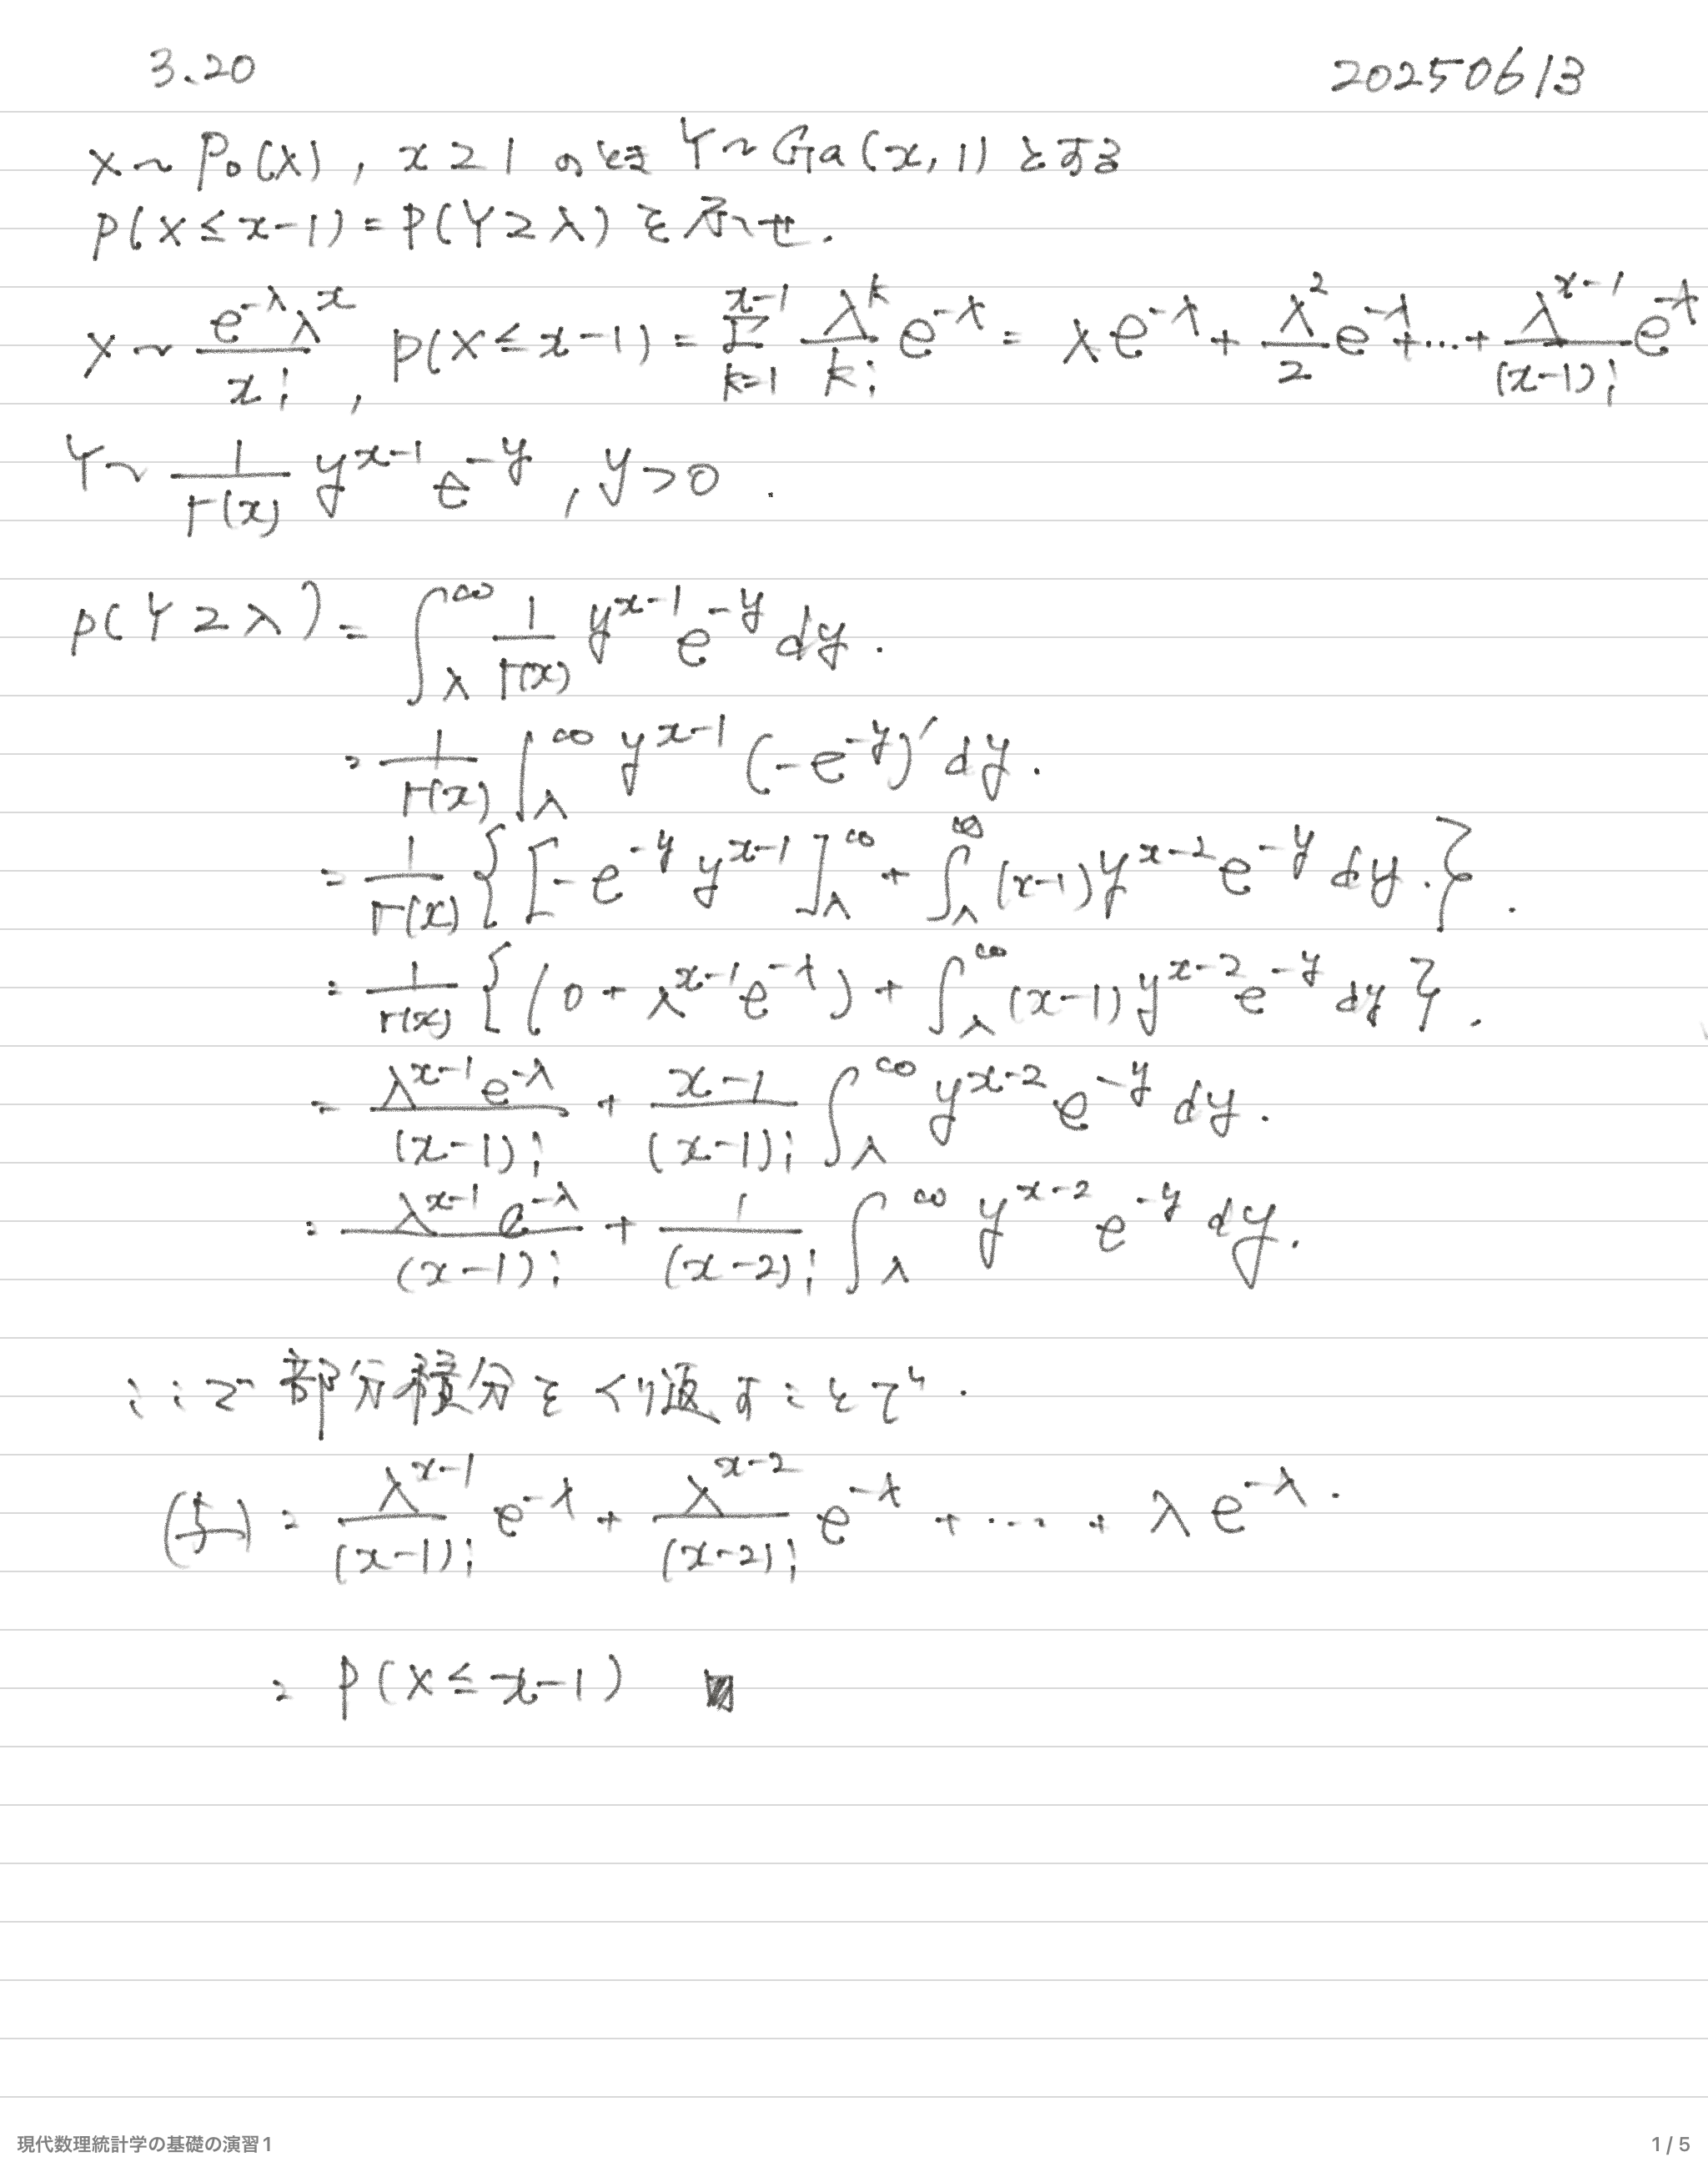 3.20
20250613
X ~ Po(λ), x ≥ 1 のとき Y ~ Ga(x, 1) とする
P(X ≤ x-1) = P(Y ≥ λ) を示せ.
X ~ e^{-λ}λ^x / x! , P(X ≤ x-1) = Σ_{k=1}^{x-1} λ^k/k! e^{-λ} = λe^{-λ} + λ^2/2 e^{-λ} + ... + λ^{x-1}/(x-1)! e^{-λ}
Y ~ 1/Γ(x) y^{x-1} e^{-y} , y > 0 .
P(Y ≥ λ) = ∫_λ^∞ 1/Γ(x) y^{x-1} e^{-y} dy .
= 1/Γ(x) ∫_λ^∞ y^{x-1} (-e^{-y})' dy .
= 1/Γ(x) { [-e^{-y} y^{x-1}]_λ^∞ + ∫_λ^∞ (x-1) y^{x-2} e^{-y} dy . } .
= 1/Γ(x) { (0 + λ^{x-1} e^{-λ}) + ∫_λ^∞ (x-1) y^{x-2} e^{-y} dy } .
= λ^{x-1} e^{-λ} / (x-1)! + (x-1)/(x-1)! ∫_λ^∞ y^{x-2} e^{-y} dy .
= λ^{x-1} e^{-λ} / (x-1)! + 1/(x-2)! ∫_λ^∞ y^{x-2} e^{-y} dy .
ここで部分積分をくり返すことで .
(与) = λ^{x-1}/(x-1)! e^{-λ} + λ^{x-2}/(x-2)! e^{-λ} + ... + λ e^{-λ} .
= P(X ≤ x-1)
現代数理統計学の基礎の演習1
1 / 5